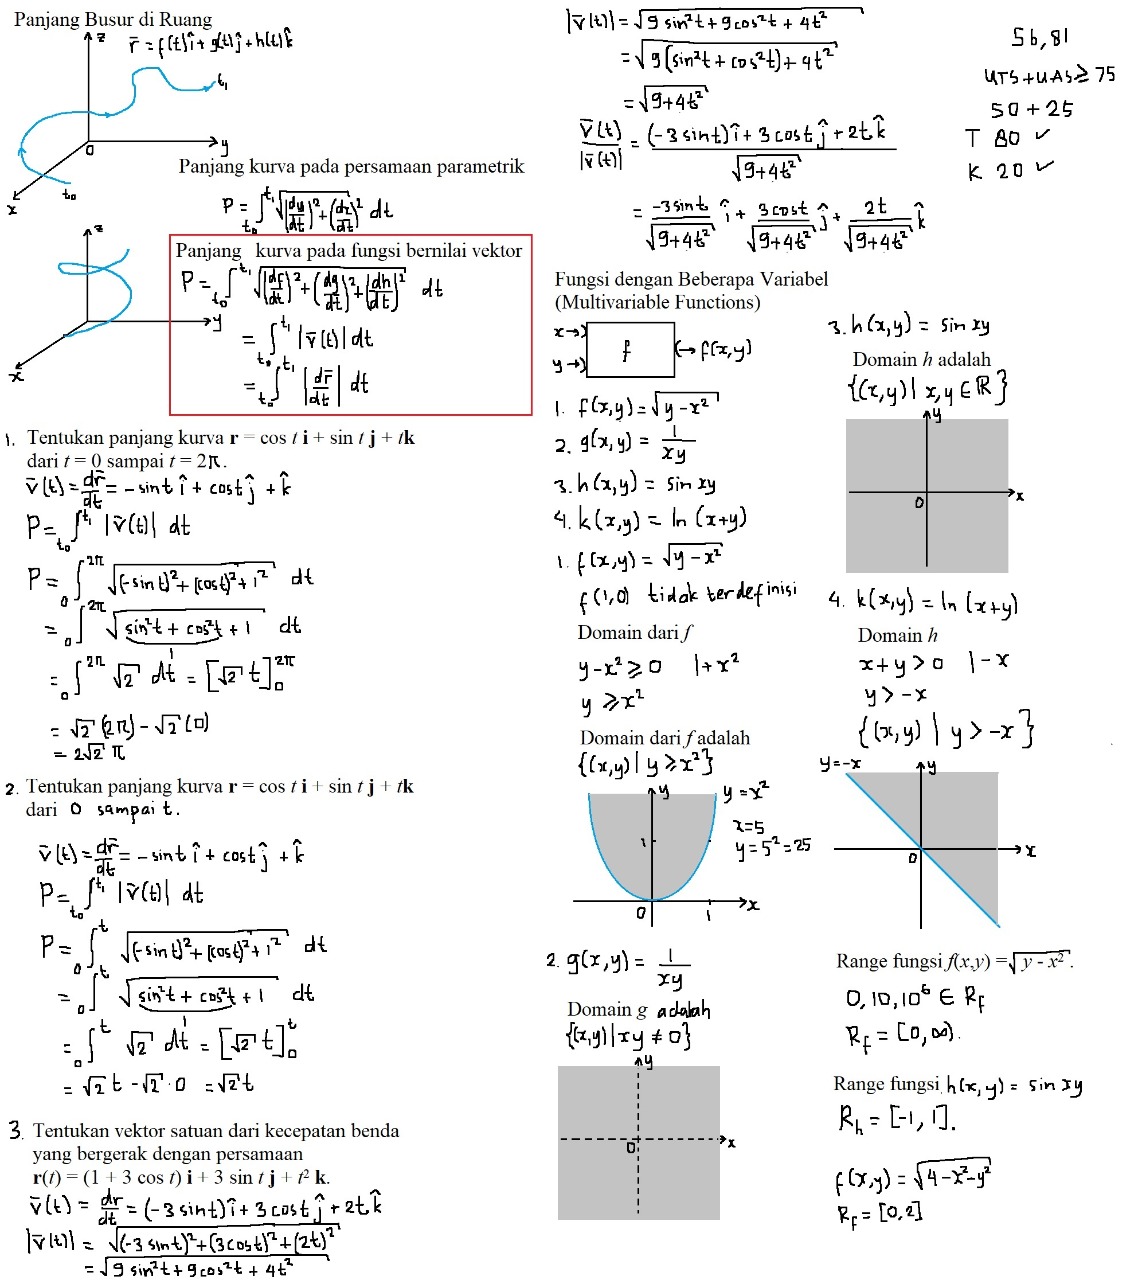 Panjang Busur di Ruang
z
r̄ = f(t)î + g(t)ĵ + h(t)k̂
t₁
0
y
x
t₀
Panjang kurva pada persamaan parametrik
P = ∫_{t₀}^{t₁} √((dy/dt)² + (dx/dt)²) dt
z
y
x
Panjang kurva pada fungsi bernilai vektor
P = ∫_{t₀}^{t₁} √((df/dt)² + (dg/dt)² + (dh/dt)²) dt
= ∫_{t₀}^{t₁} |v̄(t)| dt
= ∫_{t₀}^{t₁} |dr̄/dt| dt
1. Tentukan panjang kurva r = cos t i + sin t j + tk
dari t = 0 sampai t = 2π.
v̄(t) = dr̄/dt = -sin t î + cos t ĵ + k̂
P = ∫_{t₀}^{t₁} |v̄(t)| dt
P = ∫_0^{2π} √((-sin t)² + (cos t)² + 1²) dt
= ∫_0^{2π} √(sin²t + cos²t + 1) dt
1
= ∫_0^{2π} √2 dt = [√2 t]_0^{2π}
= √2 (2π) - √2 (0)
= 2√2 π
2. Tentukan panjang kurva r = cos t i + sin t j + tk
dari 0 sampai t.
v̄(t) = dr̄/dt = -sin t î + cos t ĵ + k̂
P = ∫_{t₀}^{t₁} |v̄(t)| dt
P = ∫_0^t √((-sin t)² + (cos t)² + 1²) dt
= ∫_0^t √(sin²t + cos²t + 1) dt
1
= ∫_0^t √2 dt = [√2 t]_0^t
= √2 t - √2 · 0 = √2 t
3. Tentukan vektor satuan dari kecepatan benda
yang bergerak dengan persamaan
r(t) = (1 + 3 cos t) i + 3 sin t j + t² k.
v̄(t) = dr/dt = (-3 sin t)î + 3 cos t ĵ + 2t k̂
|v̄(t)| = √((-3 sin t)² + (3 cos t)² + (2t)²)
= √(9 sin²t + 9 cos²t + 4t²)
|v̄(t)| = √(9 sin²t + 9 cos²t + 4t²)
= √(9(sin²t + cos²t) + 4t²)
= √(9+4t²)
v̄(t)/|v̄(t)| = ((-3 sin t)î + 3 cos t ĵ + 2t k̂)/√(9+4t²)
= -3 sin t/√(9+4t²) î + 3 cos t/√(9+4t²) ĵ + 2t/√(9+4t²) k̂
56,81
UTS + UAS ≥ 75
50 + 25
T 80 ✓
K 20 ✓
Fungsi dengan Beberapa Variabel
(Multivariable Functions)
x →
y →
f
→ f(x,y)
1. f(x,y) = √(y - x²)
2. g(x,y) = 1/xy
3. h(x,y) = sin xy
4. k(x,y) = ln (x+y)
1. f(x,y) = √(y - x²)
f(1,0) tidak terdefinisi
Domain dari f
y - x² ≥ 0 | + x²
y ≥ x²
Domain dari f adalah
{(x,y) | y ≥ x²}
y
y = x²
x = 5
y = 5² = 25
1
0
1
x
2. g(x,y) = 1/xy
Domain g adalah
{(x,y) | xy ≠ 0}
y
0
x
3. h(x,y) = sin xy
Domain h adalah
{(x,y) | x,y ∈ ℝ}
y
0
x
4. k(x,y) = ln (x+y)
Domain h
x + y > 0 | - x
y > -x
{(x,y) | y > -x}
y = -x
y
0
x
Range fungsi f(x,y) = √(y - x²).
0, 10, 10⁶ ∈ R_f
R_f = [0, ∞).
Range fungsi h(x,y) = sin xy
R_h = [-1, 1].
f(x,y) = √(4 - x² - y²)
R_f = [0,2]